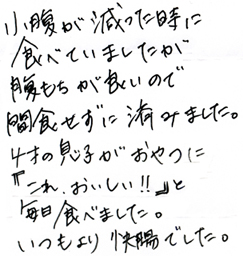 小腹が減った時に
食べていましたが
腹もちが良いので
間食せずに済みました。
4才の息子がおやつに
『これ、おいしい!!』と
毎日食べました。
いつもより快腸でした。